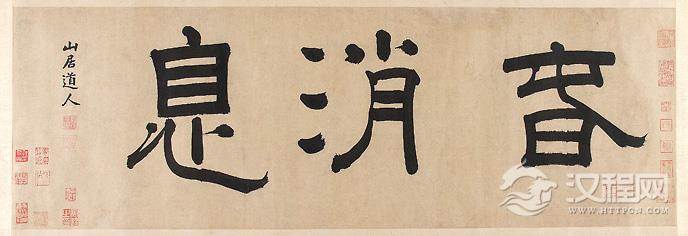 旾消息
山居道人
汉程网
WWW.HTTPCN.COM